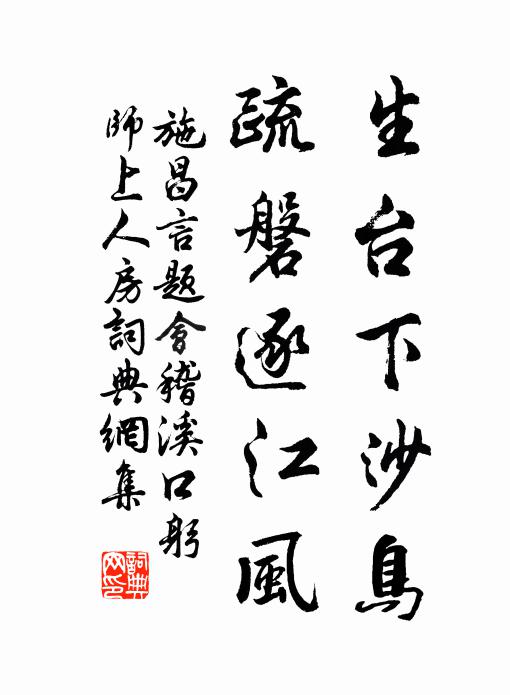 生台下沙鳥
疏磐逐江風
施昌言題會稽溪口躬
師上人房詞典網集
詞典網印